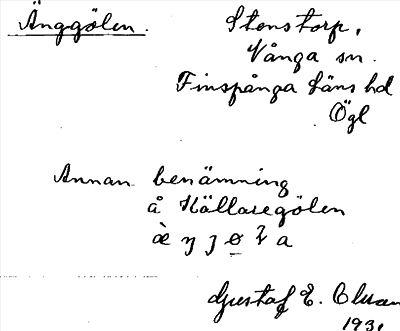 Änggölen.
Stenstorp,
Vånga sn.
Finspånga läns hd
Ögl
Annan benämning
å Källaregölen
Gustaf E.
193